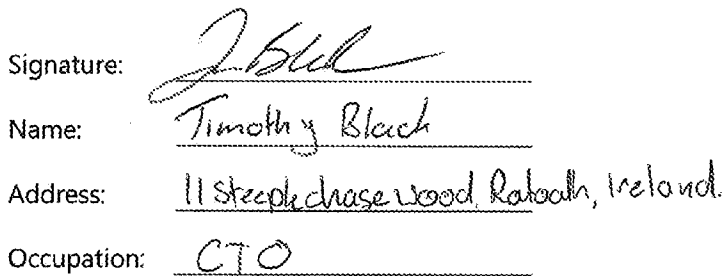 Signature:
Name: Timothy Black
Address: 11 Steeplechase wood, Ratoath, Ireland.
Occupation: CTO